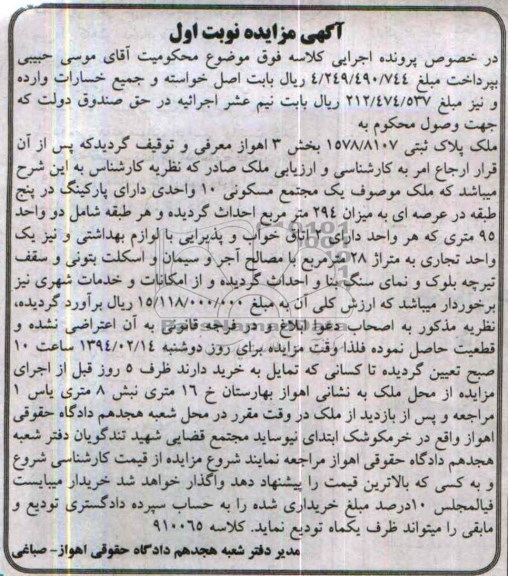 آگهی مزایده نوبت اول
در خصوص پرونده اجرایی کلاسه فوق موضوع محکومیت آقای موسی حبیبی
بپرداخت مبلغ ۴/۲۴۹/۴۹۰/۷۴۴ ریال بابت اصل خواسته و جمیع خسارات وارده
و نیز مبلغ ۲۱۲/۴۷۴/۵۳۷ ریال بابت نیم عشر اجرائیه در حق صندوق دولت که
جهت وصول محکوم به
ملک پلاک ثبتی ۱۵۷۸/۸۱۰۷ بخش ۳ اهواز معرفی و توقیف گردیدکه پس از آن
قرار ارجاع امر به کارشناسی و ارزیابی ملک صادر که نظریه کارشناس به این شرح
میباشد که ملک موصوف یک مجتمع مسکونی ۱۰ واحدی دارای پارکینگ در پنج
طبقه در عرصه ای به میزان ۲۹۴ متر مربع احداث گردیده و هر طبقه شامل دو واحد
۹۵ متری که هر واحد دارای ۲ اتاق خواب و پذیرایی با لوازم بهداشتی و نیز یک
واحد تجاری به متراژ ۲۸ مترمربع با مصالح آجر و سیمان و اسکلت بتونی و سقف
تیرچه بلوک و نمای سنگ بنا و احداث گردیده و از امکانات و خدمات شهری نیز
برخوردار میباشد که ارزش کلی آن به مبلغ ۱۵/۱۱۸/۰۰۰/۰۰۰ ریال برآورد گردیده،
نظریه مذکور به اصحاب دعوا ابلاغ و در فرجه قانونی به آن اعتراضی نشده و
قطعیت حاصل نموده فلذا وقت مزایده برای روز دوشنبه ۱۳۹۴/۰۲/۱۴ ساعت ۱۰
صبح تعیین گردیده تا کسانی که تمایل به خرید دارند ظرف ۵ روز قبل از اجرای
مزایده از محل ملک به نشانی اهواز بهارستان خ ۱۶ متری نبش ۸ متری یاس ۱
مراجعه و پس از بازدید از ملک در وقت مقرر در محل شعبه هجدهم دادگاه حقوقی
اهواز واقع در خرمکوشک ابتدای نیوساید مجتمع قضایی شهید تندگویان دفتر شعبه
هجدهم دادگاه حقوقی اهواز مراجعه نمایند شروع مزایده از قیمت کارشناسی شروع
و به کسی که بالاترین قیمت را پیشنهاد دهد واگذار خواهد شد خریدار میبایست
فیالمجلس ۱۰درصد مبلغ خریداری شده را به حساب سپرده دادگستری تودیع و
مابقی را میتواند ظرف یکماه تودیع نماید. کلاسه ۹۱۰۰۶۵
مدیر دفتر شعبه هجدهم دادگاه حقوقی اهواز- صباغی